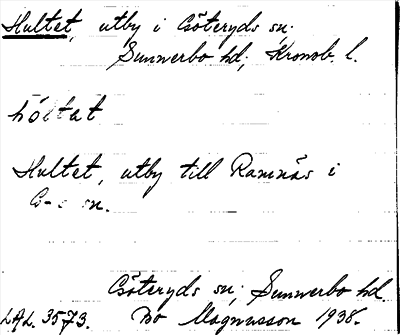 Hultet, utby i Göteryds sn;
Sunnerbo hd; Kronob. l.
hóltat
Hultet, utby till Ramnäs i
G-s sn.
Göteryds sn; Sunnerbo hd.
LAL. 3573. Bo Magnusson 1938.